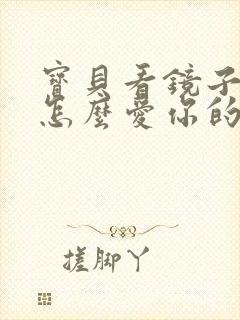 寶貝看鏡子
怎麼愛你的
搓脚丫